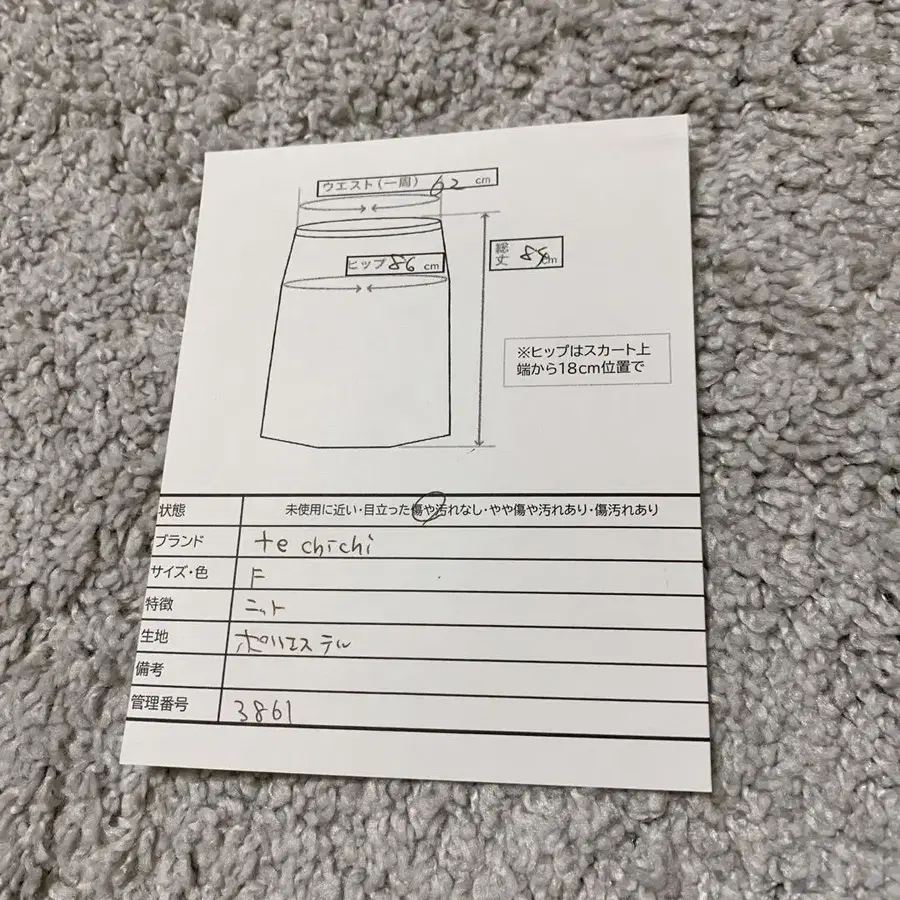 ウエスト(一周) 62 cm
ヒップ 86 cm
総丈 cm
※ヒップはスカート上
端から18cm位置で
状態 未使用に近い・目立った傷や汚れなし・やや傷や汚れあり・傷汚れあり
ブランド te chichi
サイズ・色 F
特徴 ニット
生地 ポリエステル
備考
管理番号 3861